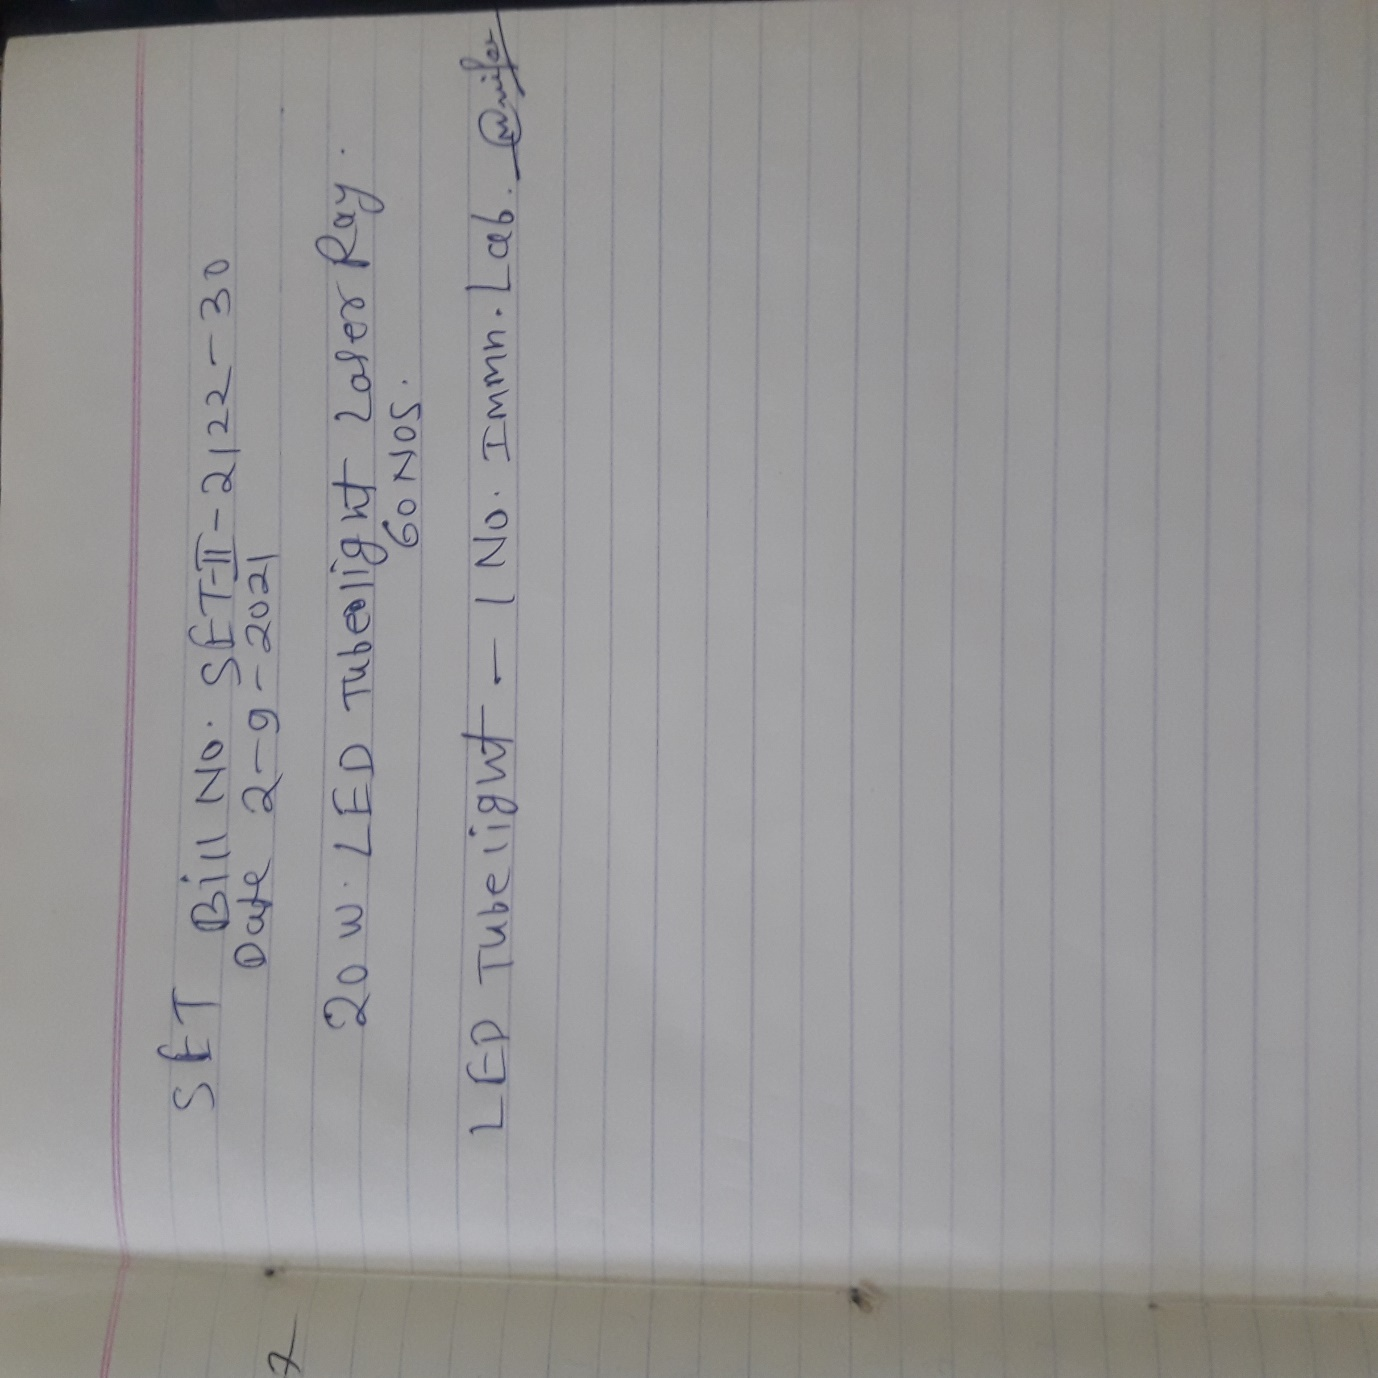 SET Bill No. SET-II-2122-30
Date 2-9-2021
20 W. LED Tubelight Laser Ray.
60 NOS.
LED Tubelight - 1 No. Immn. Lab.